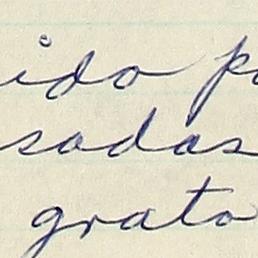 ido po
sadas
grato